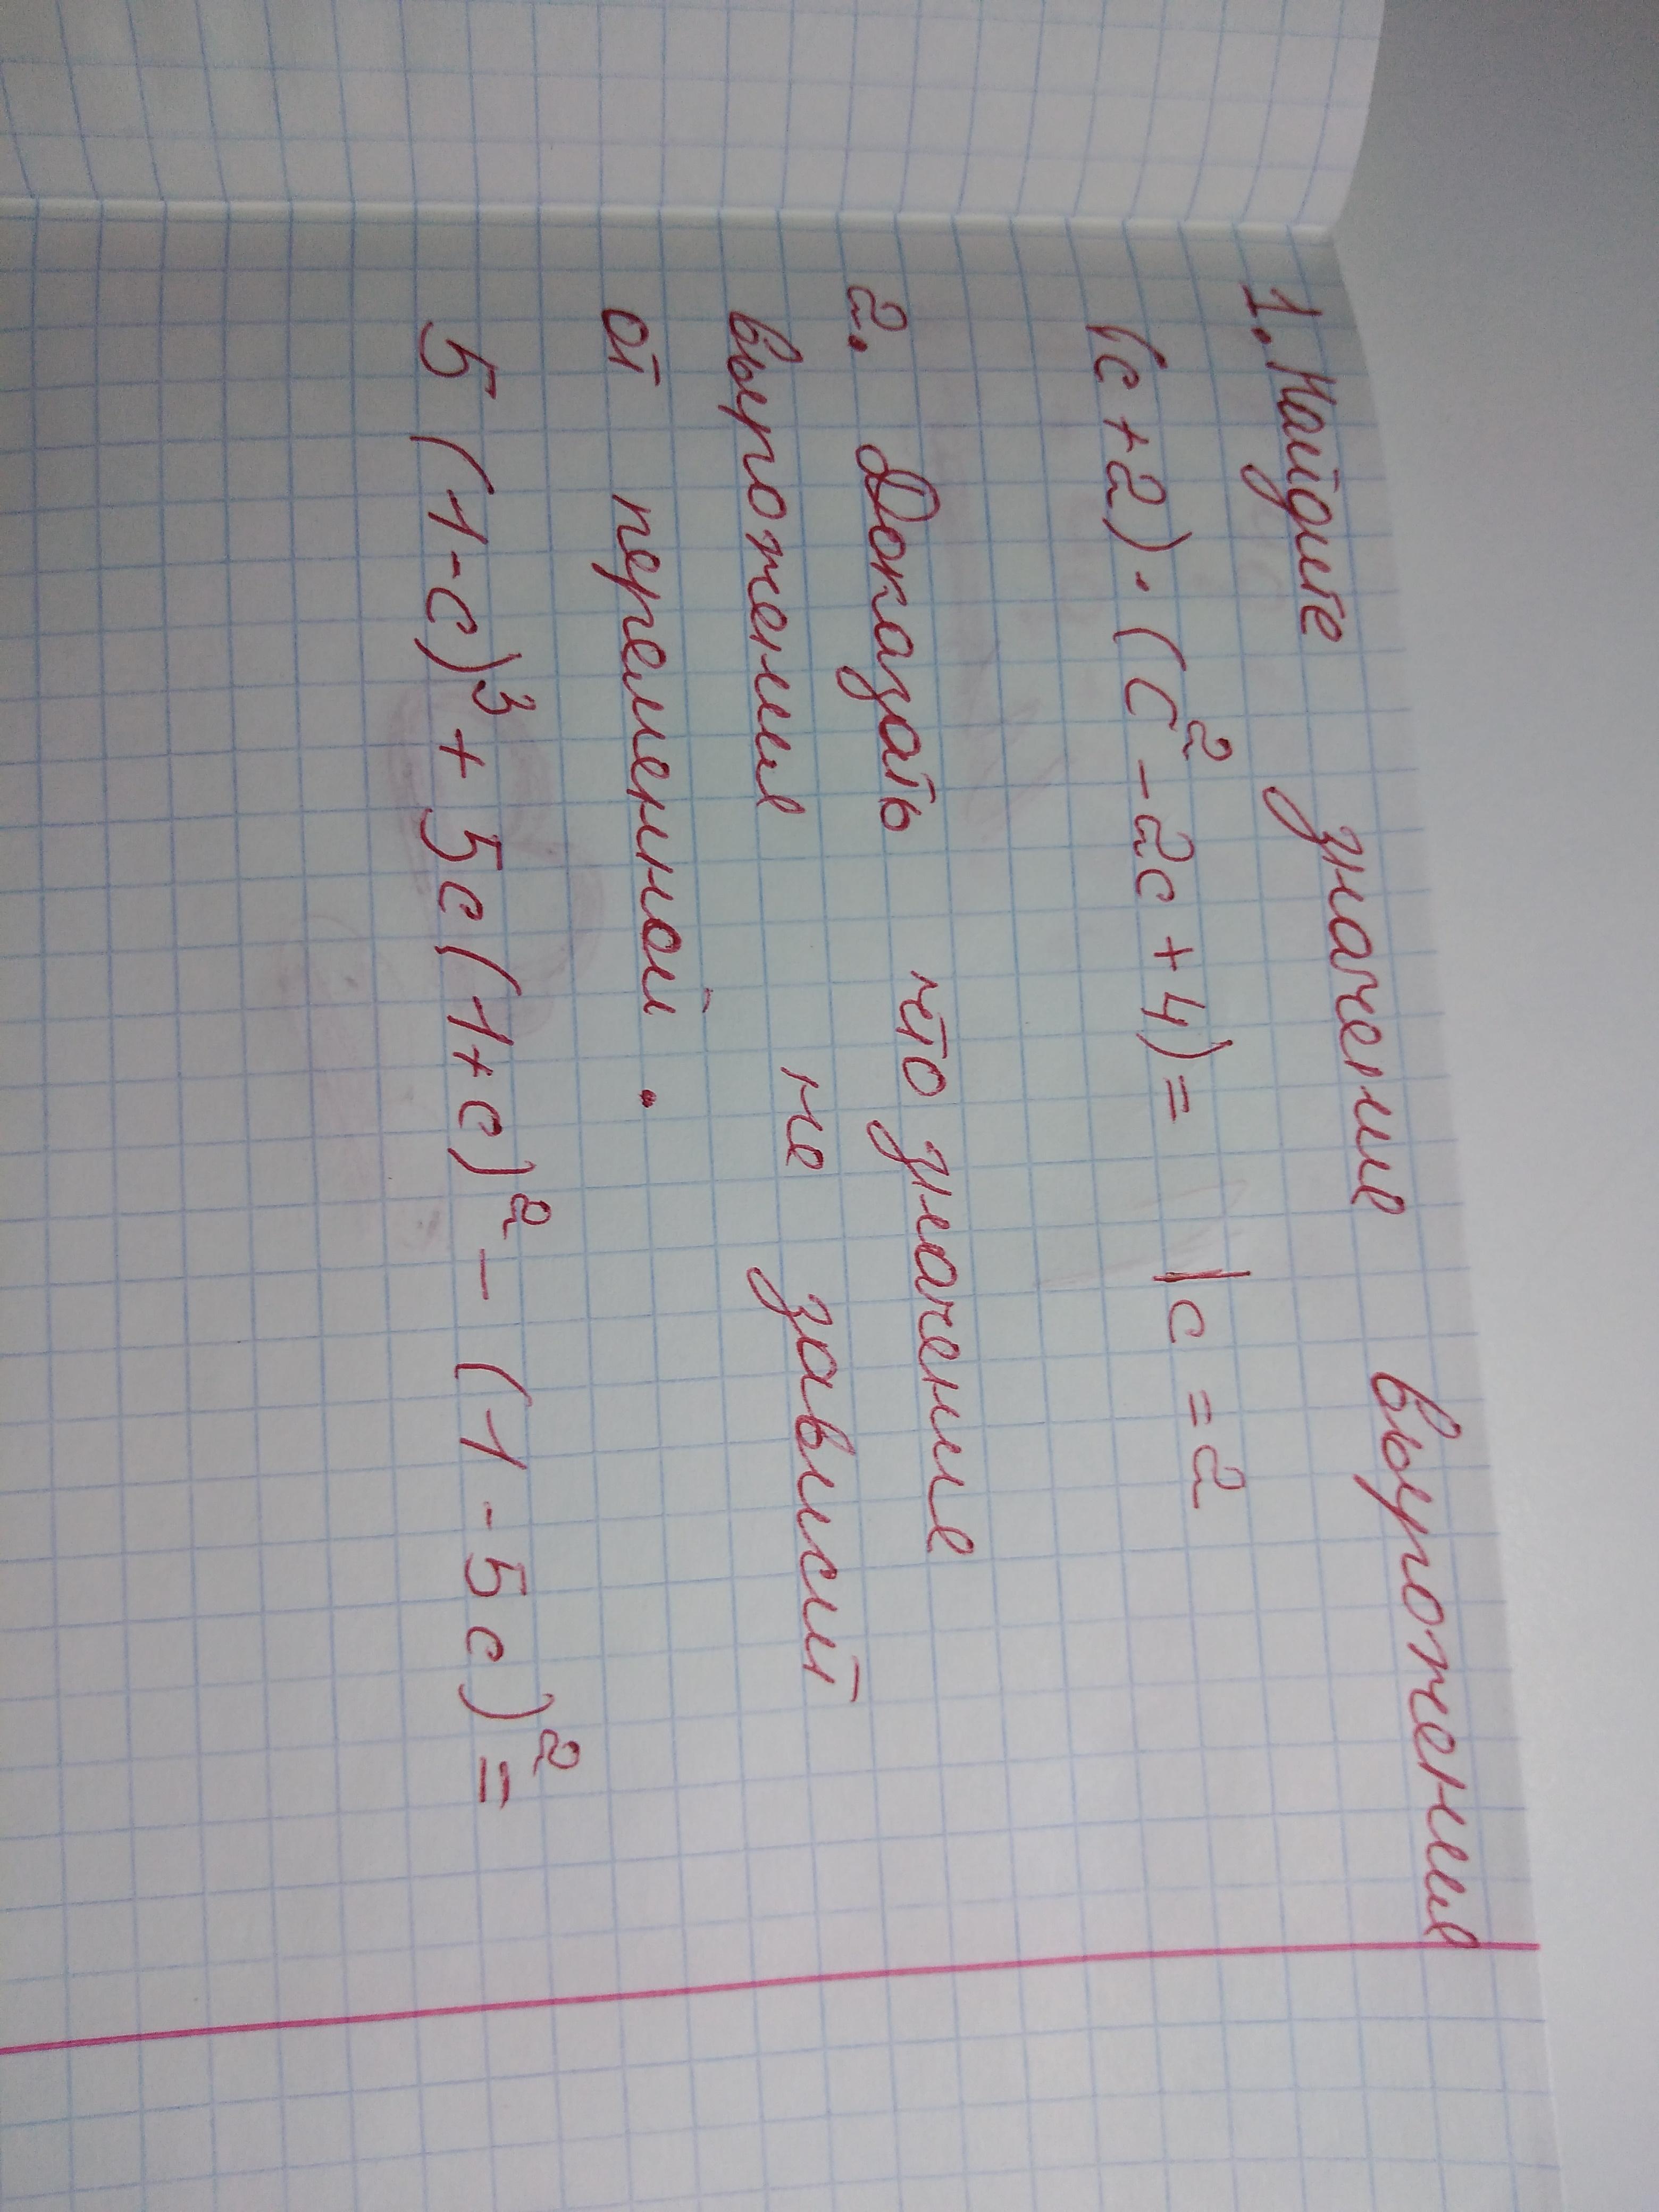 1. Найдите значение выражения
(c+2)·(c²-2c+4)= |c=2
2. Доказать что значение
выражения не зависит
от переменной.
5(1-c)³+5c(1+c)²-(1-5c)²=